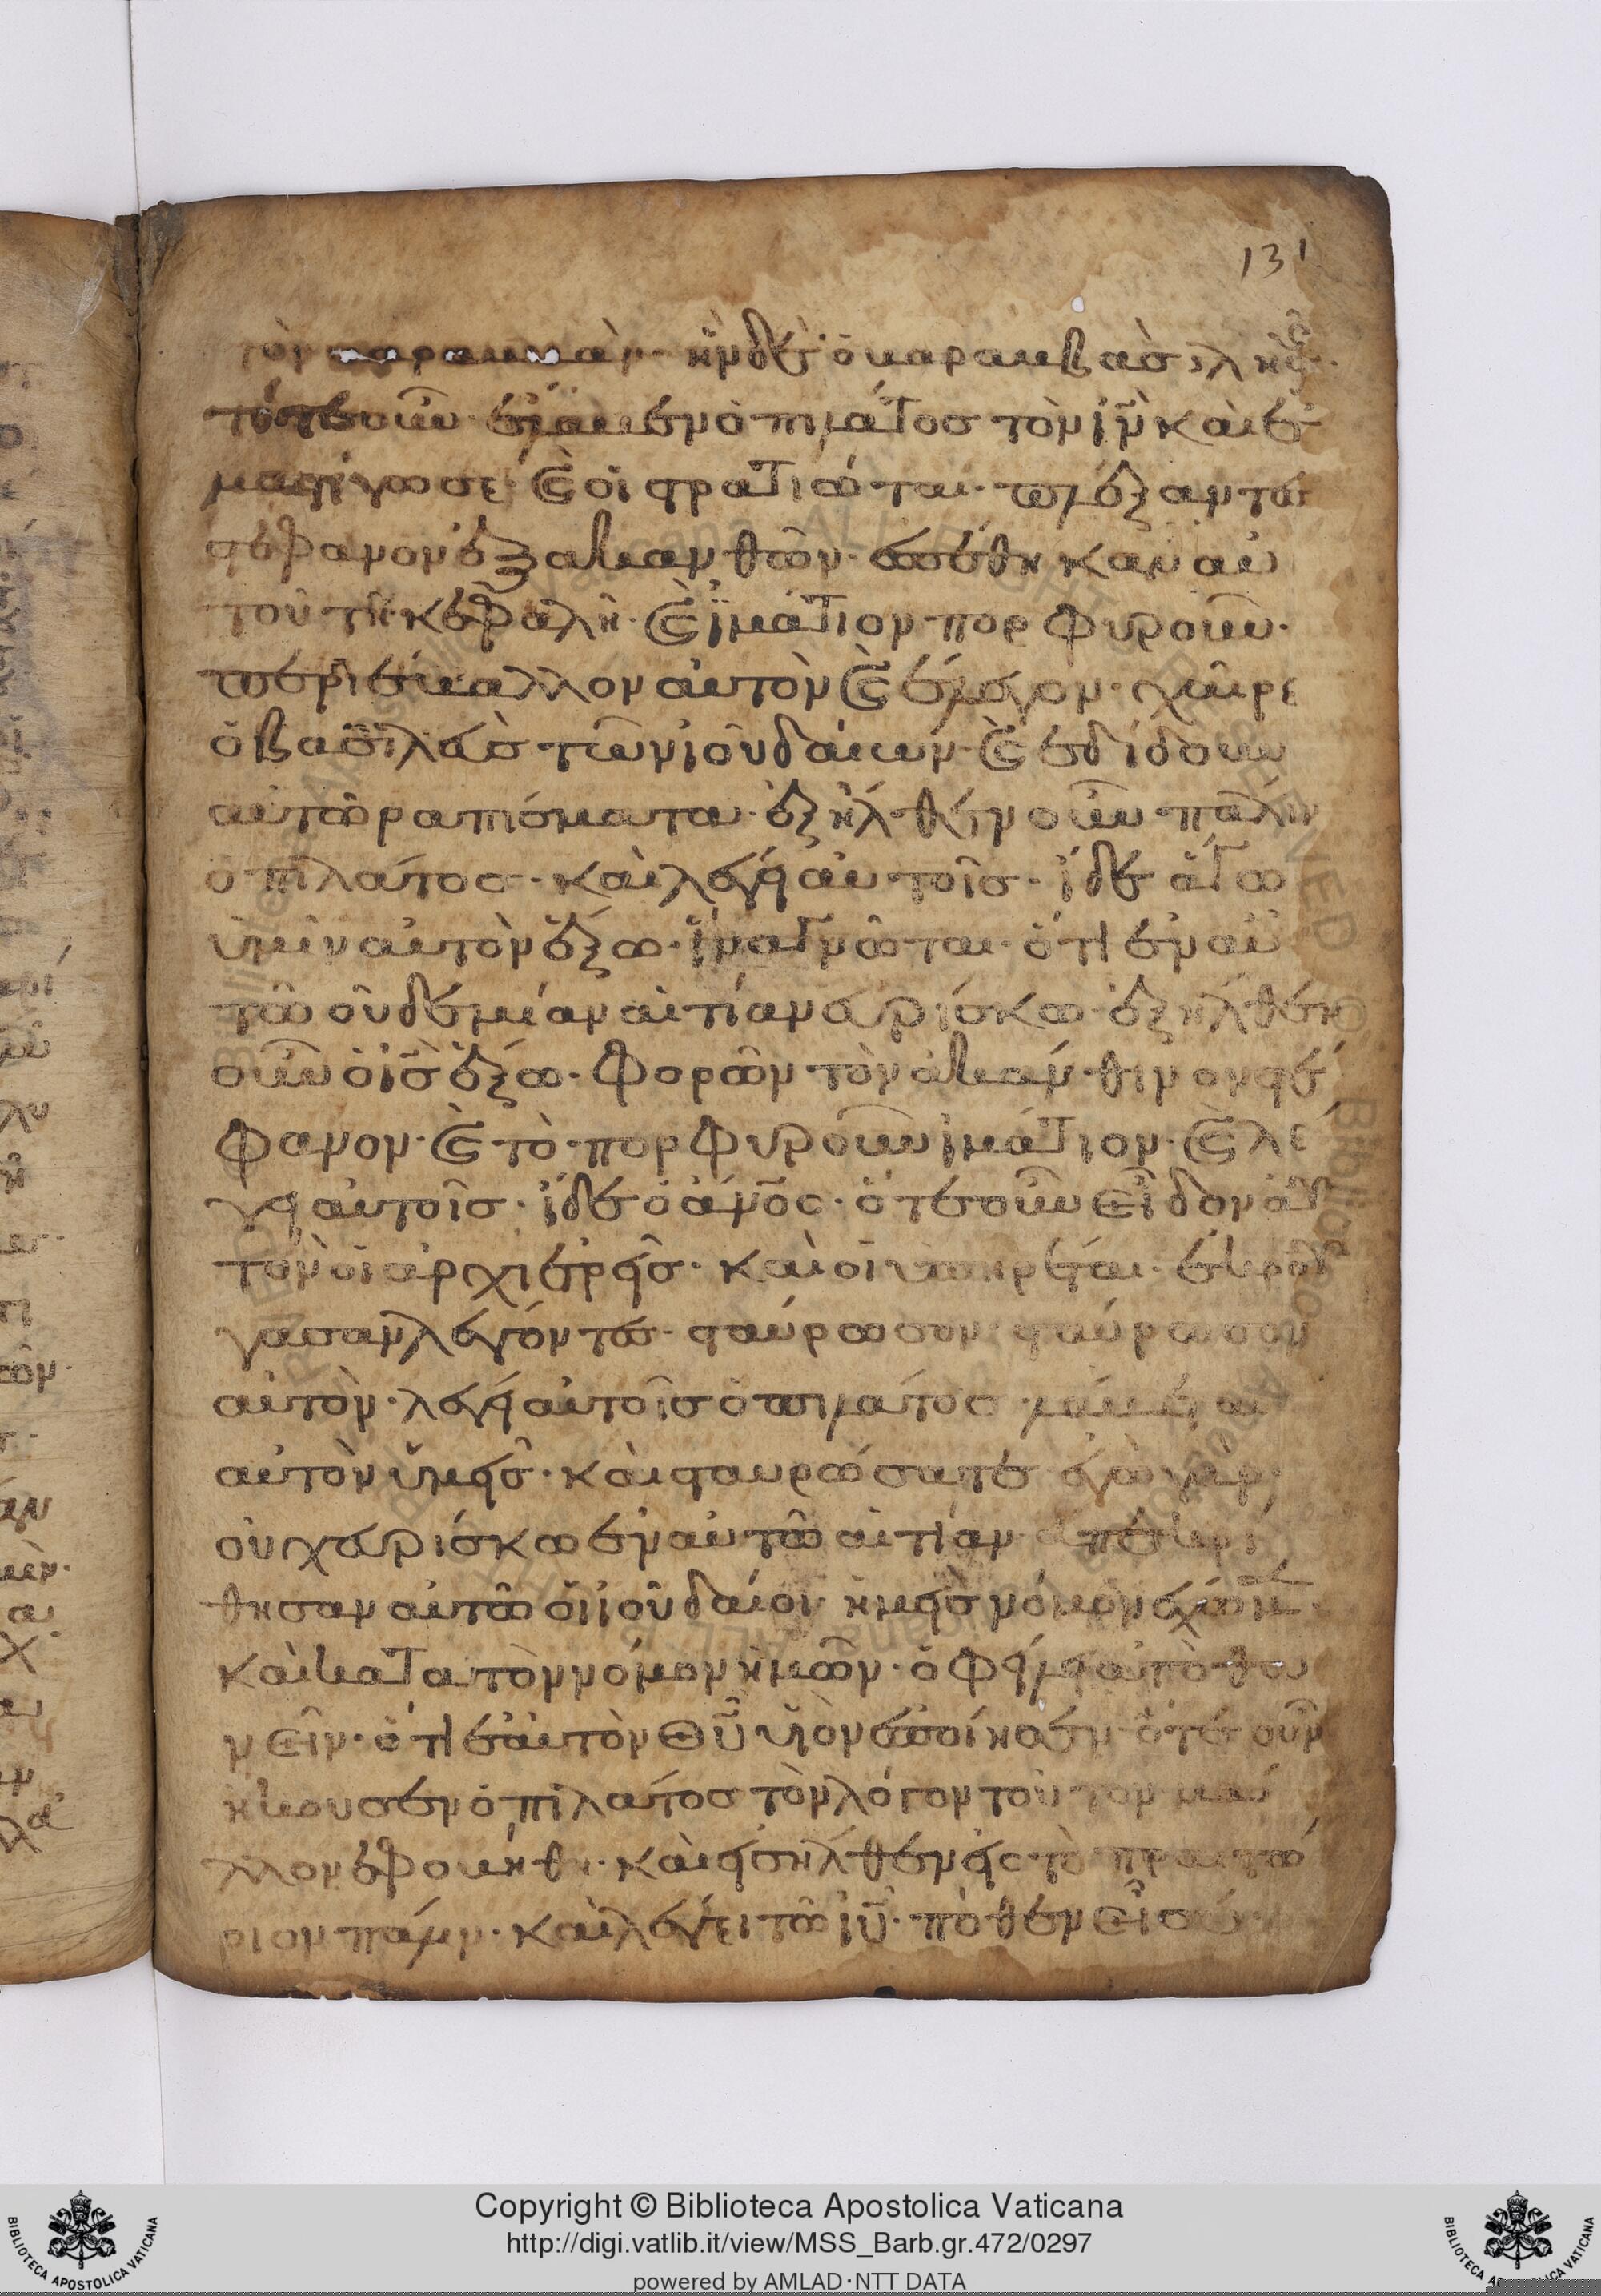 131
τὸν βαραββὰν· ἦν δὲ ὁ βαραββὰσ λῃςῆς·
τότε οὖν ἔλαβεν ὁ πιλάτος τὸν ιν̄ καὶ ἐ
μαςίγωσε· καὶ οἱ ςρατιῶται· πλέξαντες
ςέφανον ἐξ ἀκανθῶν· ἐπέθηκαν αὐ
τοῦ τῆ κεφαλῆ· καὶ ἱμάτιον πορφυροῦν·
περιέβαλλον αὐτὸν καὶ ἔλεγον· χαῖρε
ὁ βασιλεὺσ τῶν ἰουδαίων· καὶ ἐδίδουν
αὐτῶ ραπίσματα· ἐξῆλθεν οὖν πάλιν
ὁ πιλάτος· καὶ λέγει αὐτοῖσ· ἴδε ἄγω
ὑμῖν αὐτὸν ἔξω· ἵνα γνῶται· ὅτι ἐν αὐ
τῶ οὐδεμίαν αἰτίαν εὑρίσκω· ἐξῆλθεν
οὖν ὁ ισ̄ ἔξω· φορῶν τὸν ἀκάνθινον ςέ
φανον· καὶ τὸ πορφυροῦν ἱμάτιον· καὶ λέ
γει αὐτοῖσ· ἴδε ὁ ἄνο̄ς· ὅτε οὖν εἶδον αὐ
τὸν οἱ ἀρχιερεῖσ· καὶ οἱ ὑπηρέται· ἐκραύ
γασαν λέγοντες· ςαύρωσον ςαύρωσον
αὐτὸν· λέγει αὐτοῖσ ὁ πιλάτος· λάβετε
αὐτὸν ὑμεῖσ· καὶ ςαυρώσατε ἐγὼ γὰρ
οὐχ εὑρίσκω ἐν αὐτῶ αἰτίαν ἀπεκρί
θησαν αὐτῶ οἱ ἰουδαίοι· ἡμεῖσ νόμον ἔχωμ
καὶ κατα τὸν νόμον ἡμῶν· ὀφείλει ἀποθα
νεῖν· ὅτι ἑαυτὸν θῦ υἱὸν ἐποίησεν· ὅτε οὖν
ἤκουσεν ὁ πιλάτοσ τὸν λόγον τοῦτον μᾶ
λλον ἐφοβήθη· καὶ εἰσῆλθεν εἰς τὸ πραιτώ
ριον πάλιν· καὶ λέγει τῶ ιῦ· πόθεν εἶ σύ·
Copyright © Biblioteca Apostolica Vaticana
http://digi.vatlib.it/view/MSS_Barb.gr.472/0297
powered by AMLAD·NTT DATA